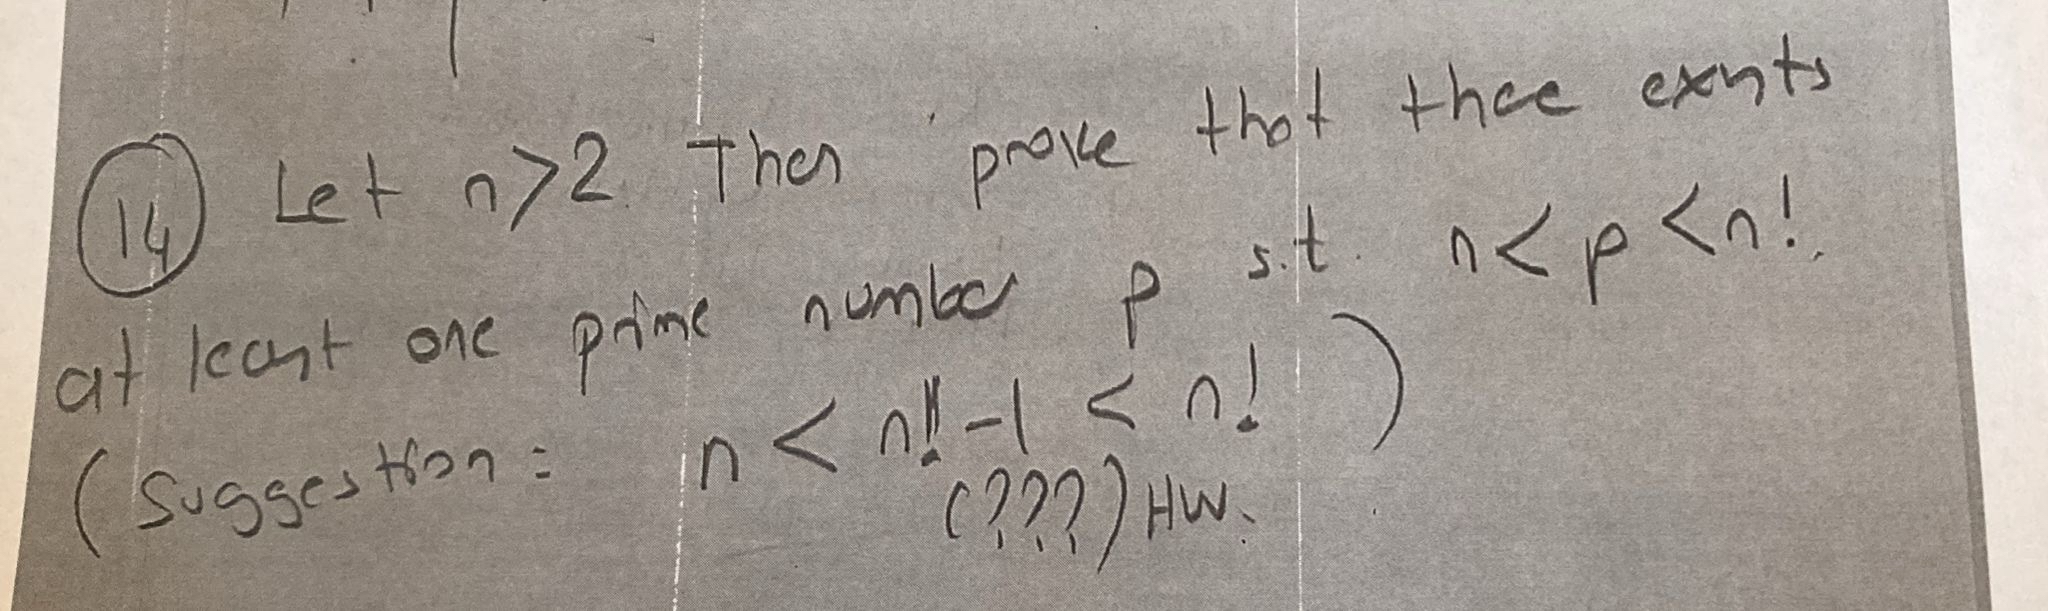 14 Let n>2. Then prove that there exists
at least one prime number p s.t. n<p<n!.
(Suggestion: n < n!-1 < n! )
(???) HW.